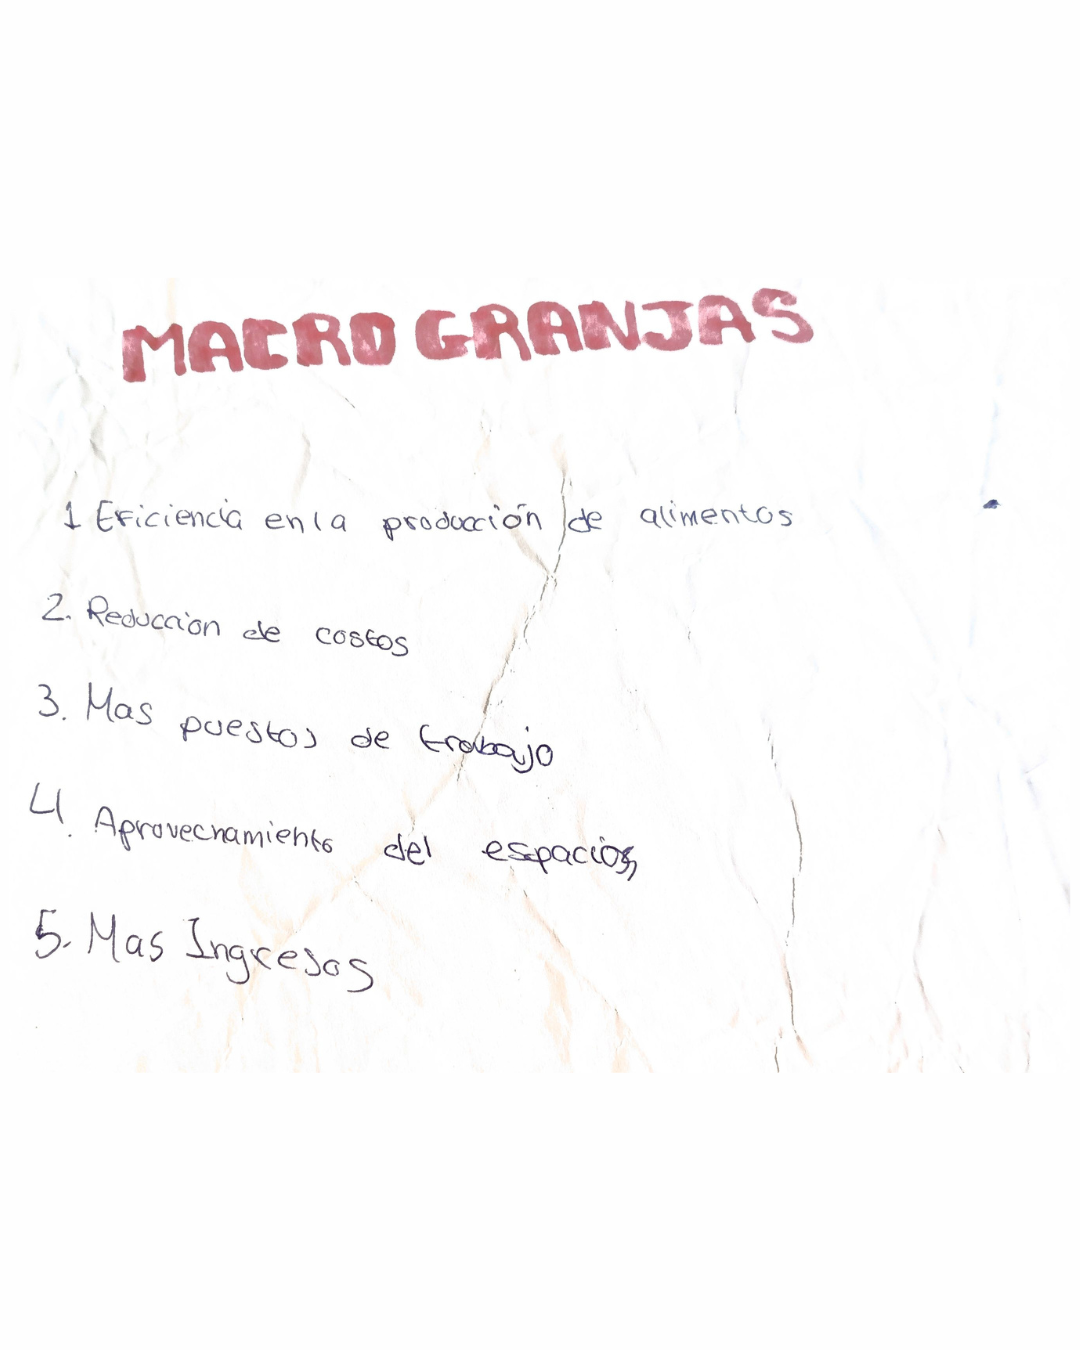 MACRO GRANJAS
1 Eficiencia en la producción de alimentos
2. Reduccion de costos
3. Mas puestos de trabajo
4. Aprovechamiento del espacios
5. Mas Ingresos